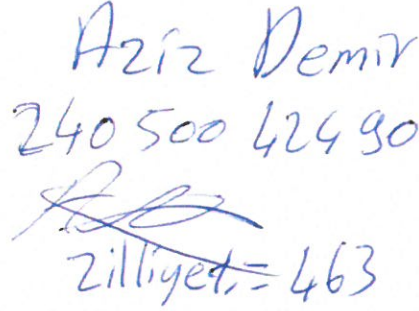 Aziz Demir
240 500 424 90
Zilliyet = 463